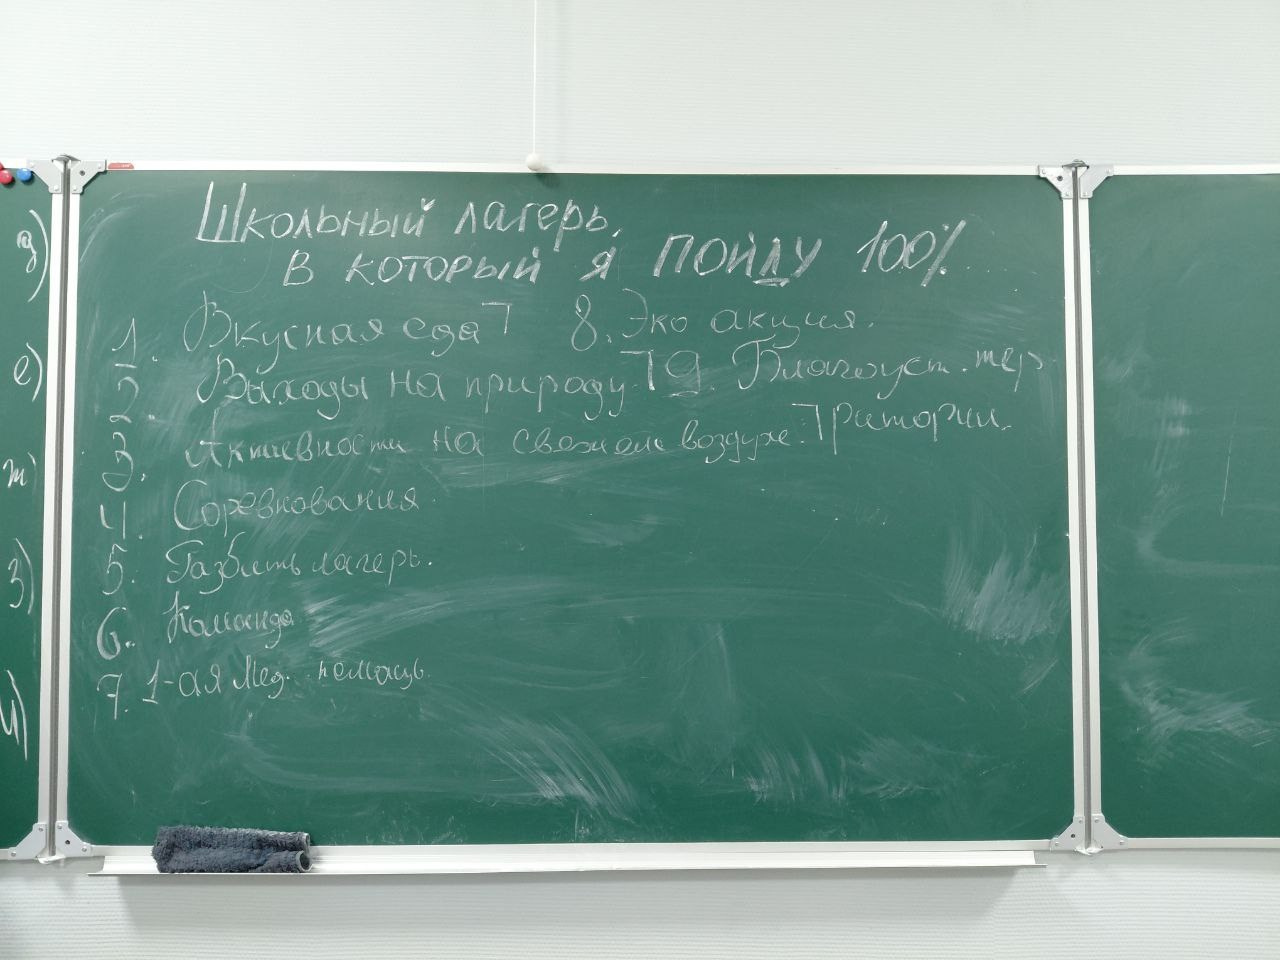 Школьный лагерь,
в который я ПОЙДУ 100%
1. Вкусная еда
2. Выходы на природу.
3. Активности на свежем воздухе.
4. Соревнования.
5. Разбить лагерь.
6. Команда
7. 1-ая Мед. помощь.
8. Эко акция.
9. Благоуст. тер
ритории.
д)
е)
ж)
з)
и)